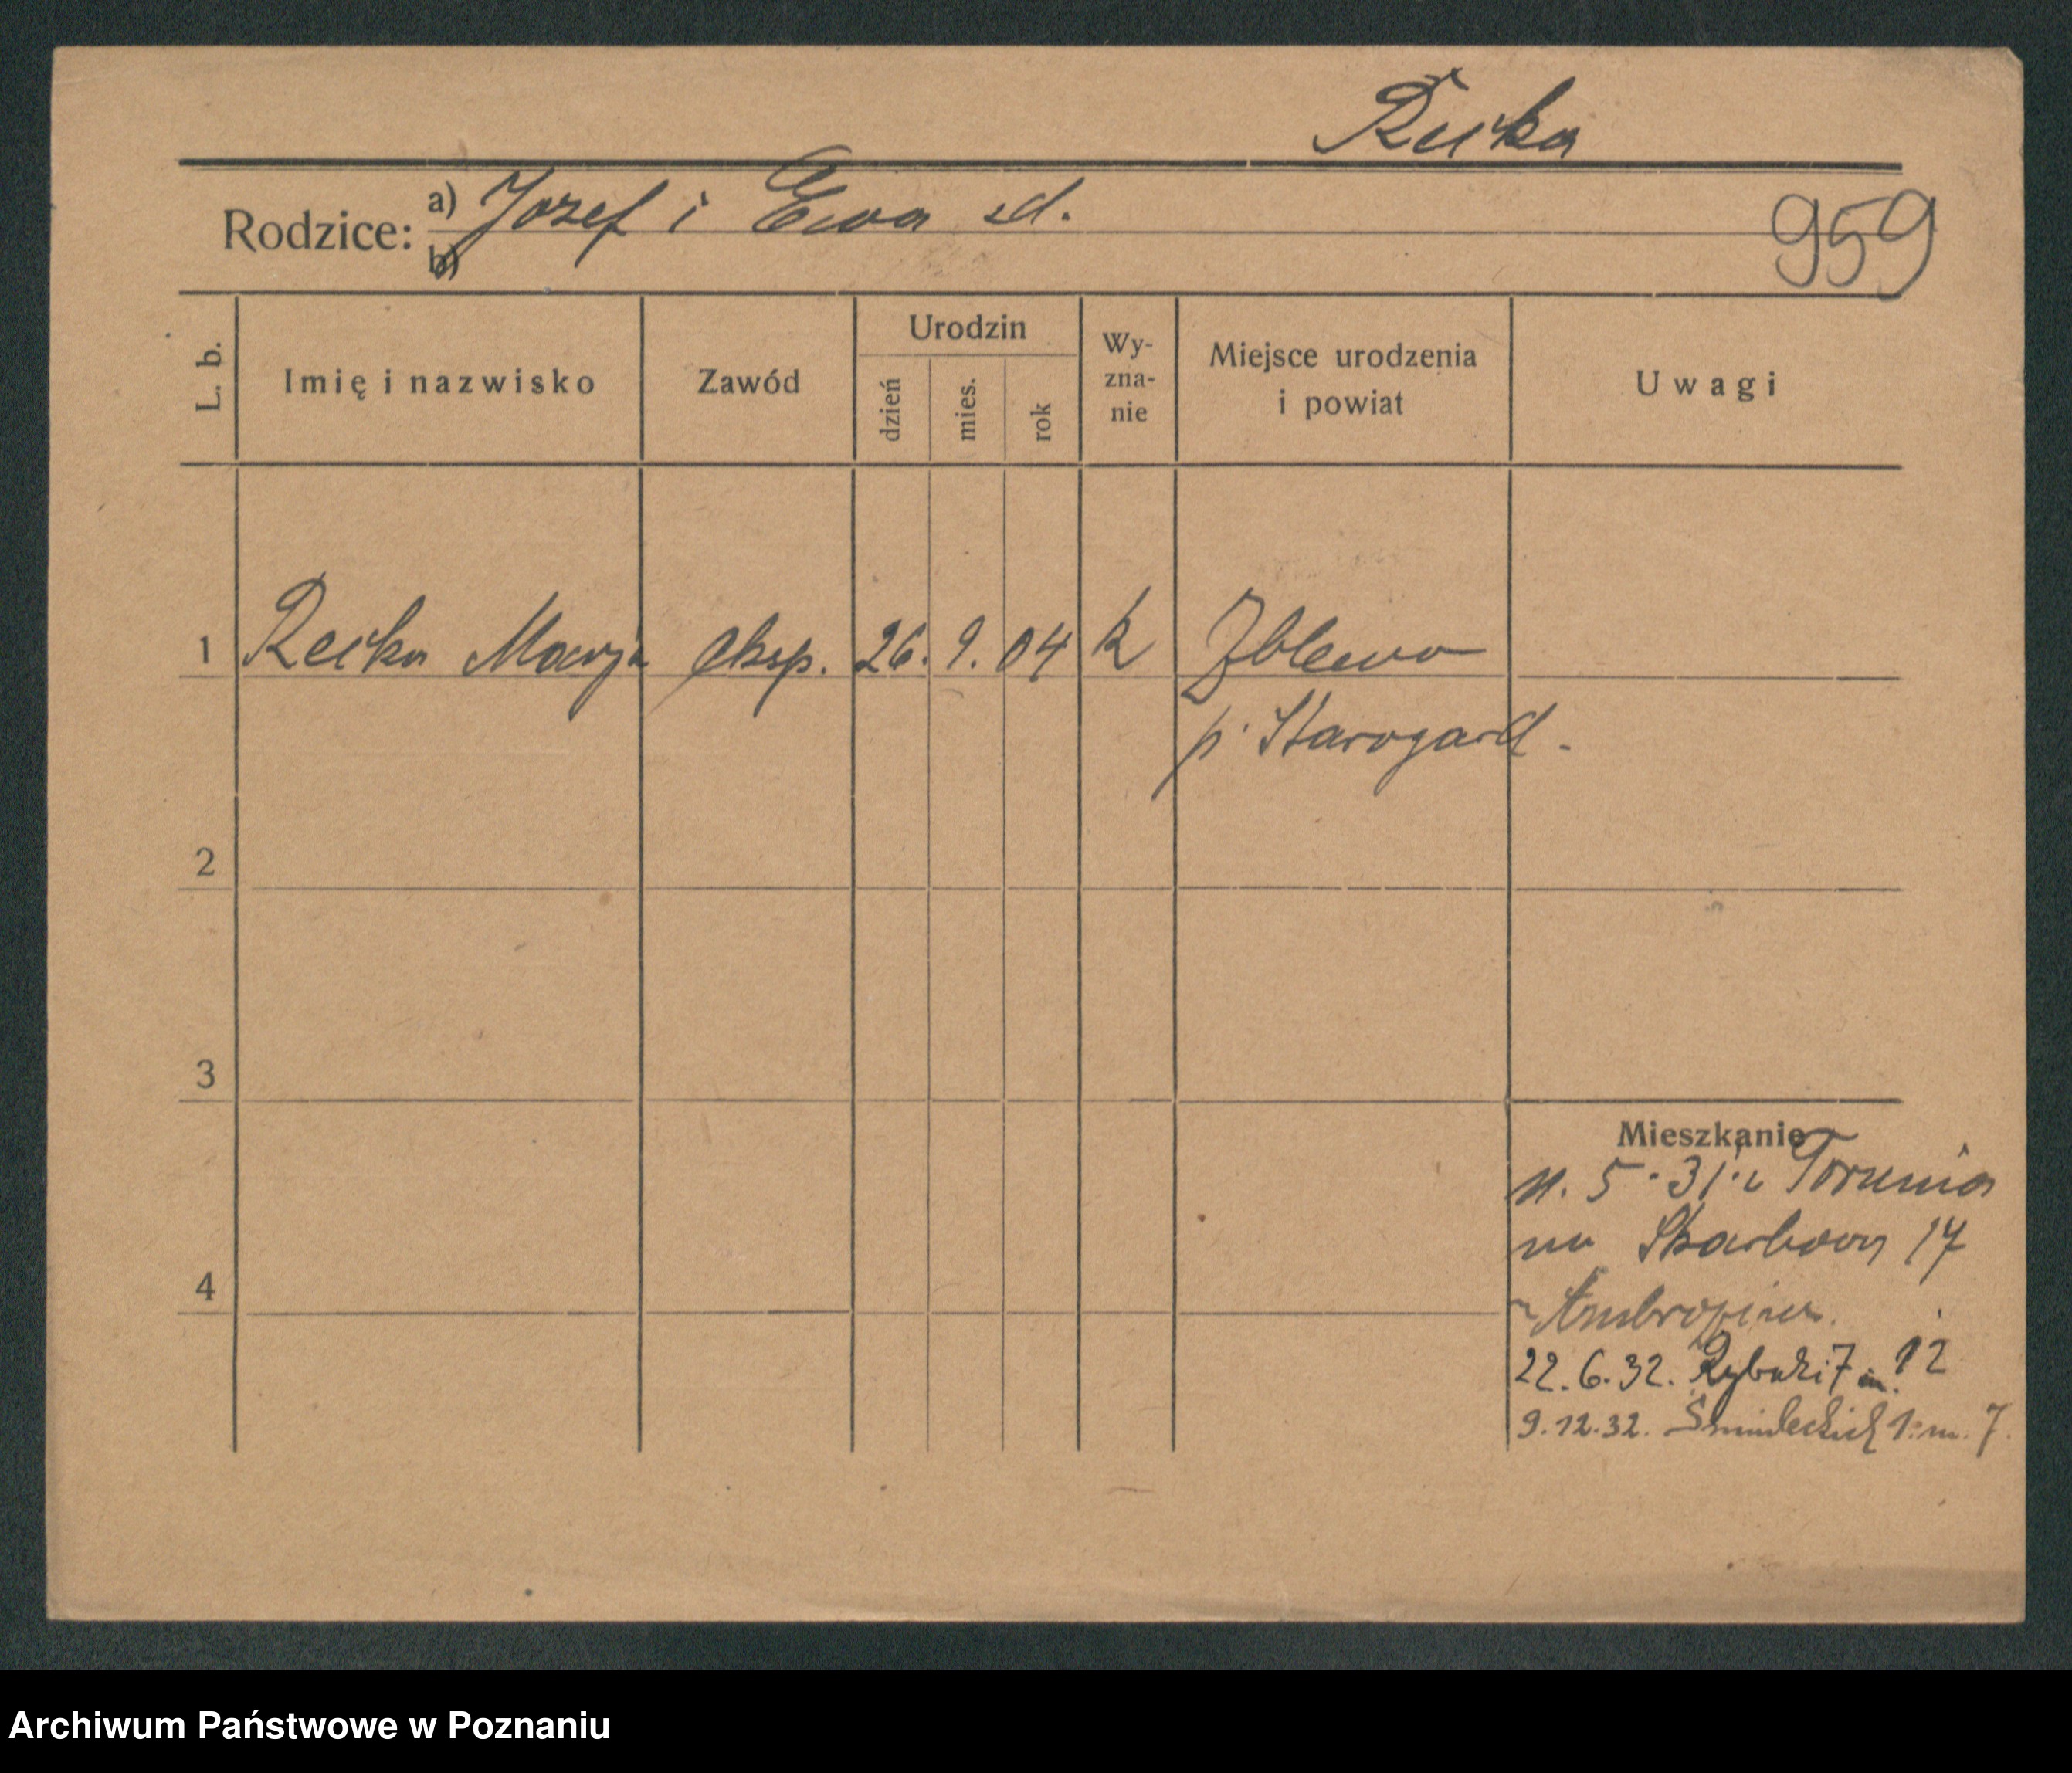 Recka
Rodzice: a) Jozef i Ewa zd.
b)
959
L. b. Imię i nazwisko Zawód Urodzin dzień mies. rok Wy-zna-nie Miejsce urodzenia i powiat Uwagi
1 Recka Marja eksp. 26. 9. 04 k Zblewo
p. Starogard.
2
3
Mieszkanie
5.31. z Torunia
na Skarbowa 17
4
22.6.32. Rybaki 7 m. 12
9.12.32. 1. m. 7.
Archiwum Państwowe w Poznaniu